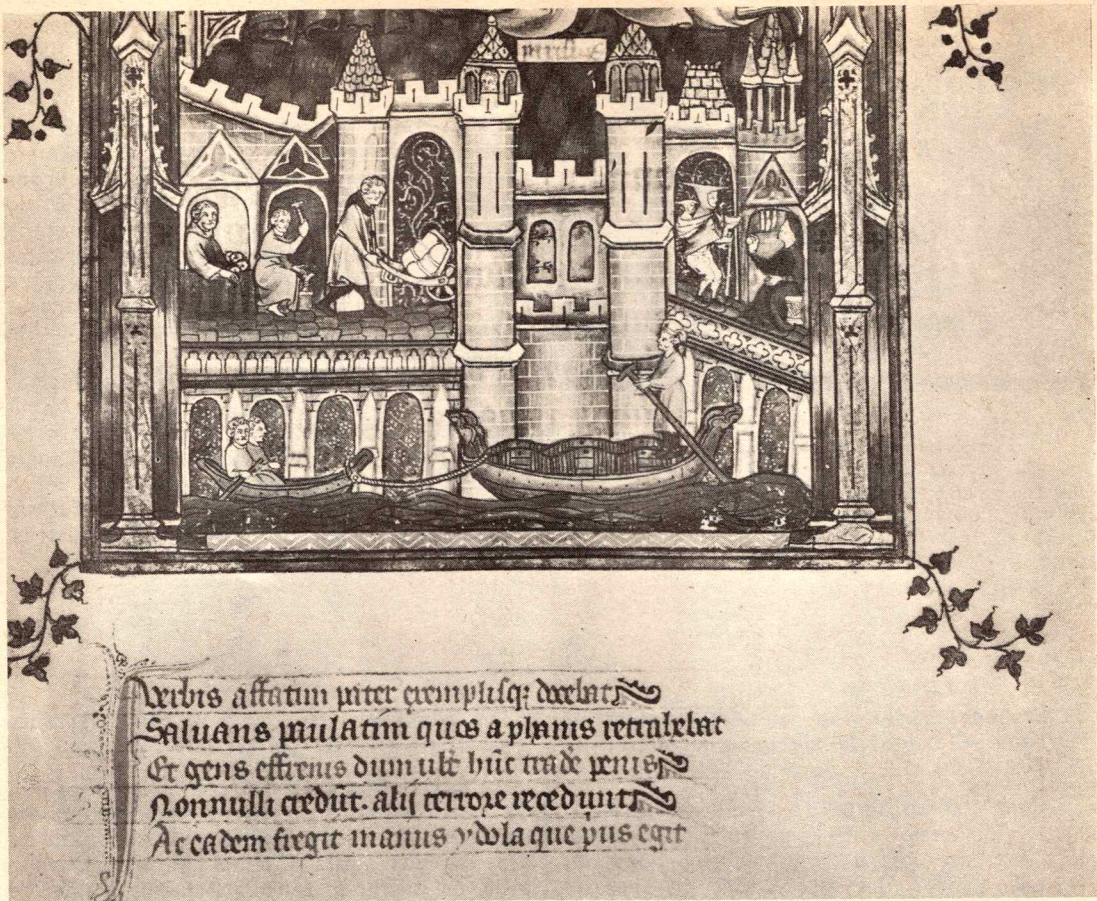 Verbis affatim pater exemplisq; docebat
Saluans paulatim quos a phanis retrahebat
Et gens effrenis dum uult hūc tradē penis
Nonnulli credūt. alij terrore recedunt
Ac eadem fregit manus ydola que pius egit